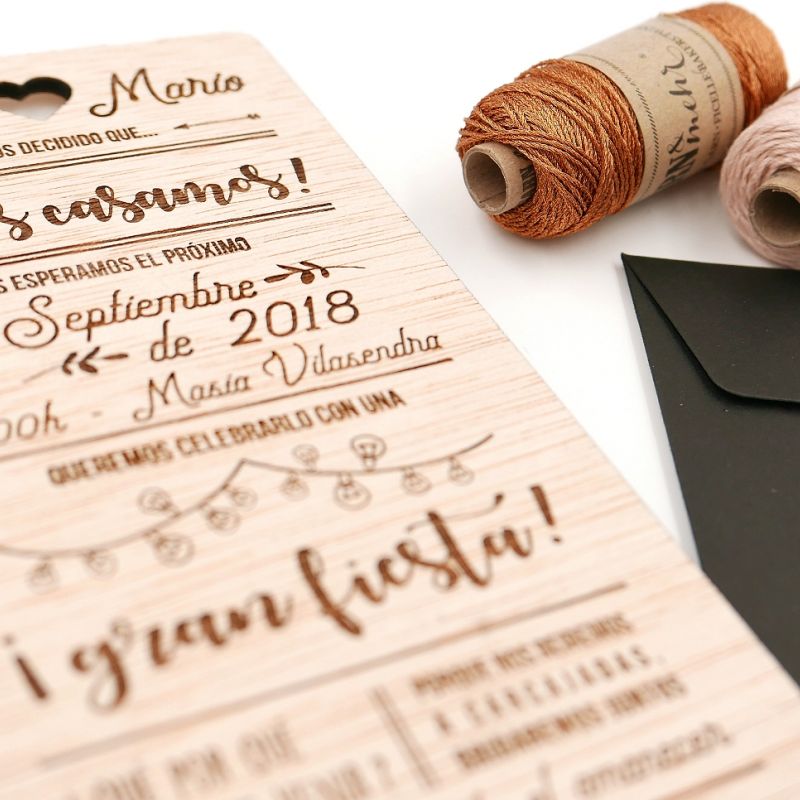 Mario
OS DECIDIDO QUE...
s casamos!
S ESPERAMOS EL PRÓXIMO
Septiembre
de 2018
00h - Masía Vilasendra
QUEREMOS CELEBRARLO CON UNA
¡gran fiesta!
QUE POR QUE
PORQUE NOS REIREMOS
A CARCAJADAS,
BAILAREMOS JUNTOS
amanecer